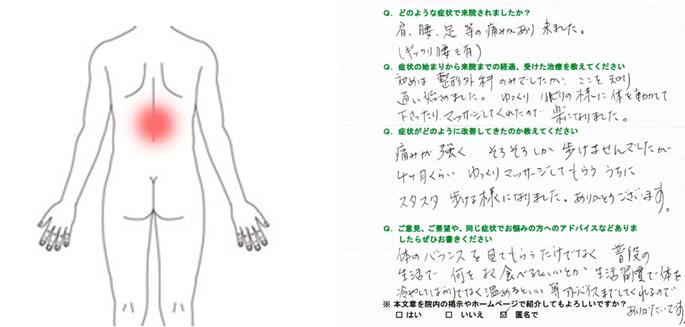 Q. どのような症状で来院されましたか?
肩、腰、足 等の痛みがあり 来ました。
(ギックリ腰も有)
Q. 症状の始まりから来院までの経過、受けた治療を教えてください
初めは 整形外科 のみでしたが、ここを知り
通い始めました。ゆっくり の様に 体を動かして
下さったり、マッサージしてくれたので 楽になりました。
Q. 症状がどのように改善してきたのか教えてください
痛みが 強く そろそろしか 歩けませんでしたが
4ヶ月くらい ゆっくりマッサージしてもらううちに
スタスタ 歩ける様になりました。ありがとうございます。
Q. ご意見、ご要望や、同じ症状でお悩みの方へのアドバイスなどありま
したらぜひお書きください
体のバランスを見てもらうだけでなく 普段の
生活で 何を 食べるといいとか 生活習慣で体を
冷やしてばかりでなく温めるといい 等アドバイスまでしてくれるので
ありがたいです。
※ 本文章を院内の掲示やホームページで紹介してもよろしいですか?
□ はい □ いいえ ☑ 匿名で